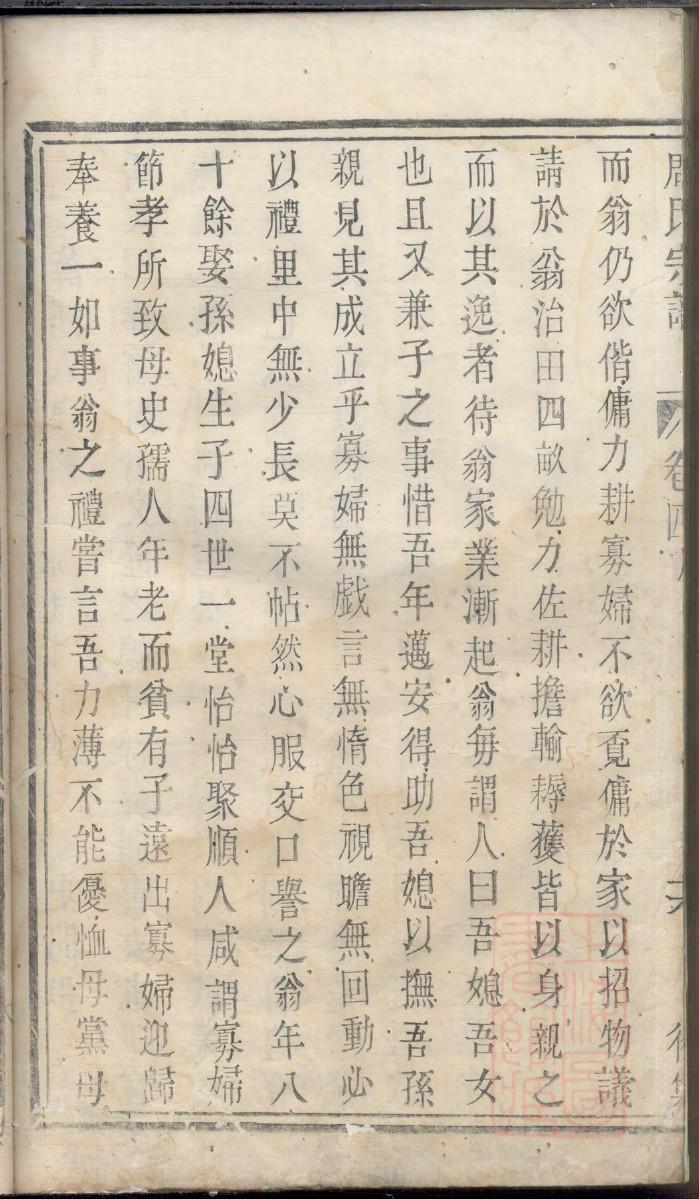 周氏宗譜 卷四 六
而翁仍欲偕傭力耕寡婦不欲覔傭於家以招物議
請於翁治田四畝勉力佐耕擔輸耨穫皆以身親之
而以其逸者待翁家業漸起翁每謂人曰吾媳吾女
也且又兼子之事惜吾年邁安得助吾媳以撫吾孫
親見其成立乎寡婦無戲言無惰色視瞻無回動必
以禮里中無少長莫不帖然心服交口譽之翁年八
十餘娶孫媳生子四世一堂怡怡聚順人咸謂寡婦
節孝所致母史孺人年老而貧有子遠出寡婦迎歸
奉養一如事翁之禮嘗言吾力薄不能優恤母黨母